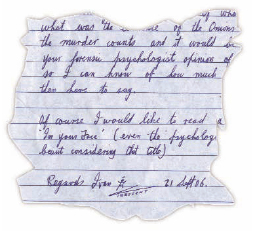 who
what was the of the Onions
the murder counts and it would be
your forensic psychologist opinion of
so I can know of how much
then have to say.
Of course I would like to read a
'In your Face' (even the psycholog
bout considering the title)
Regards Ivan
INNOCENT
21 Sept 06.